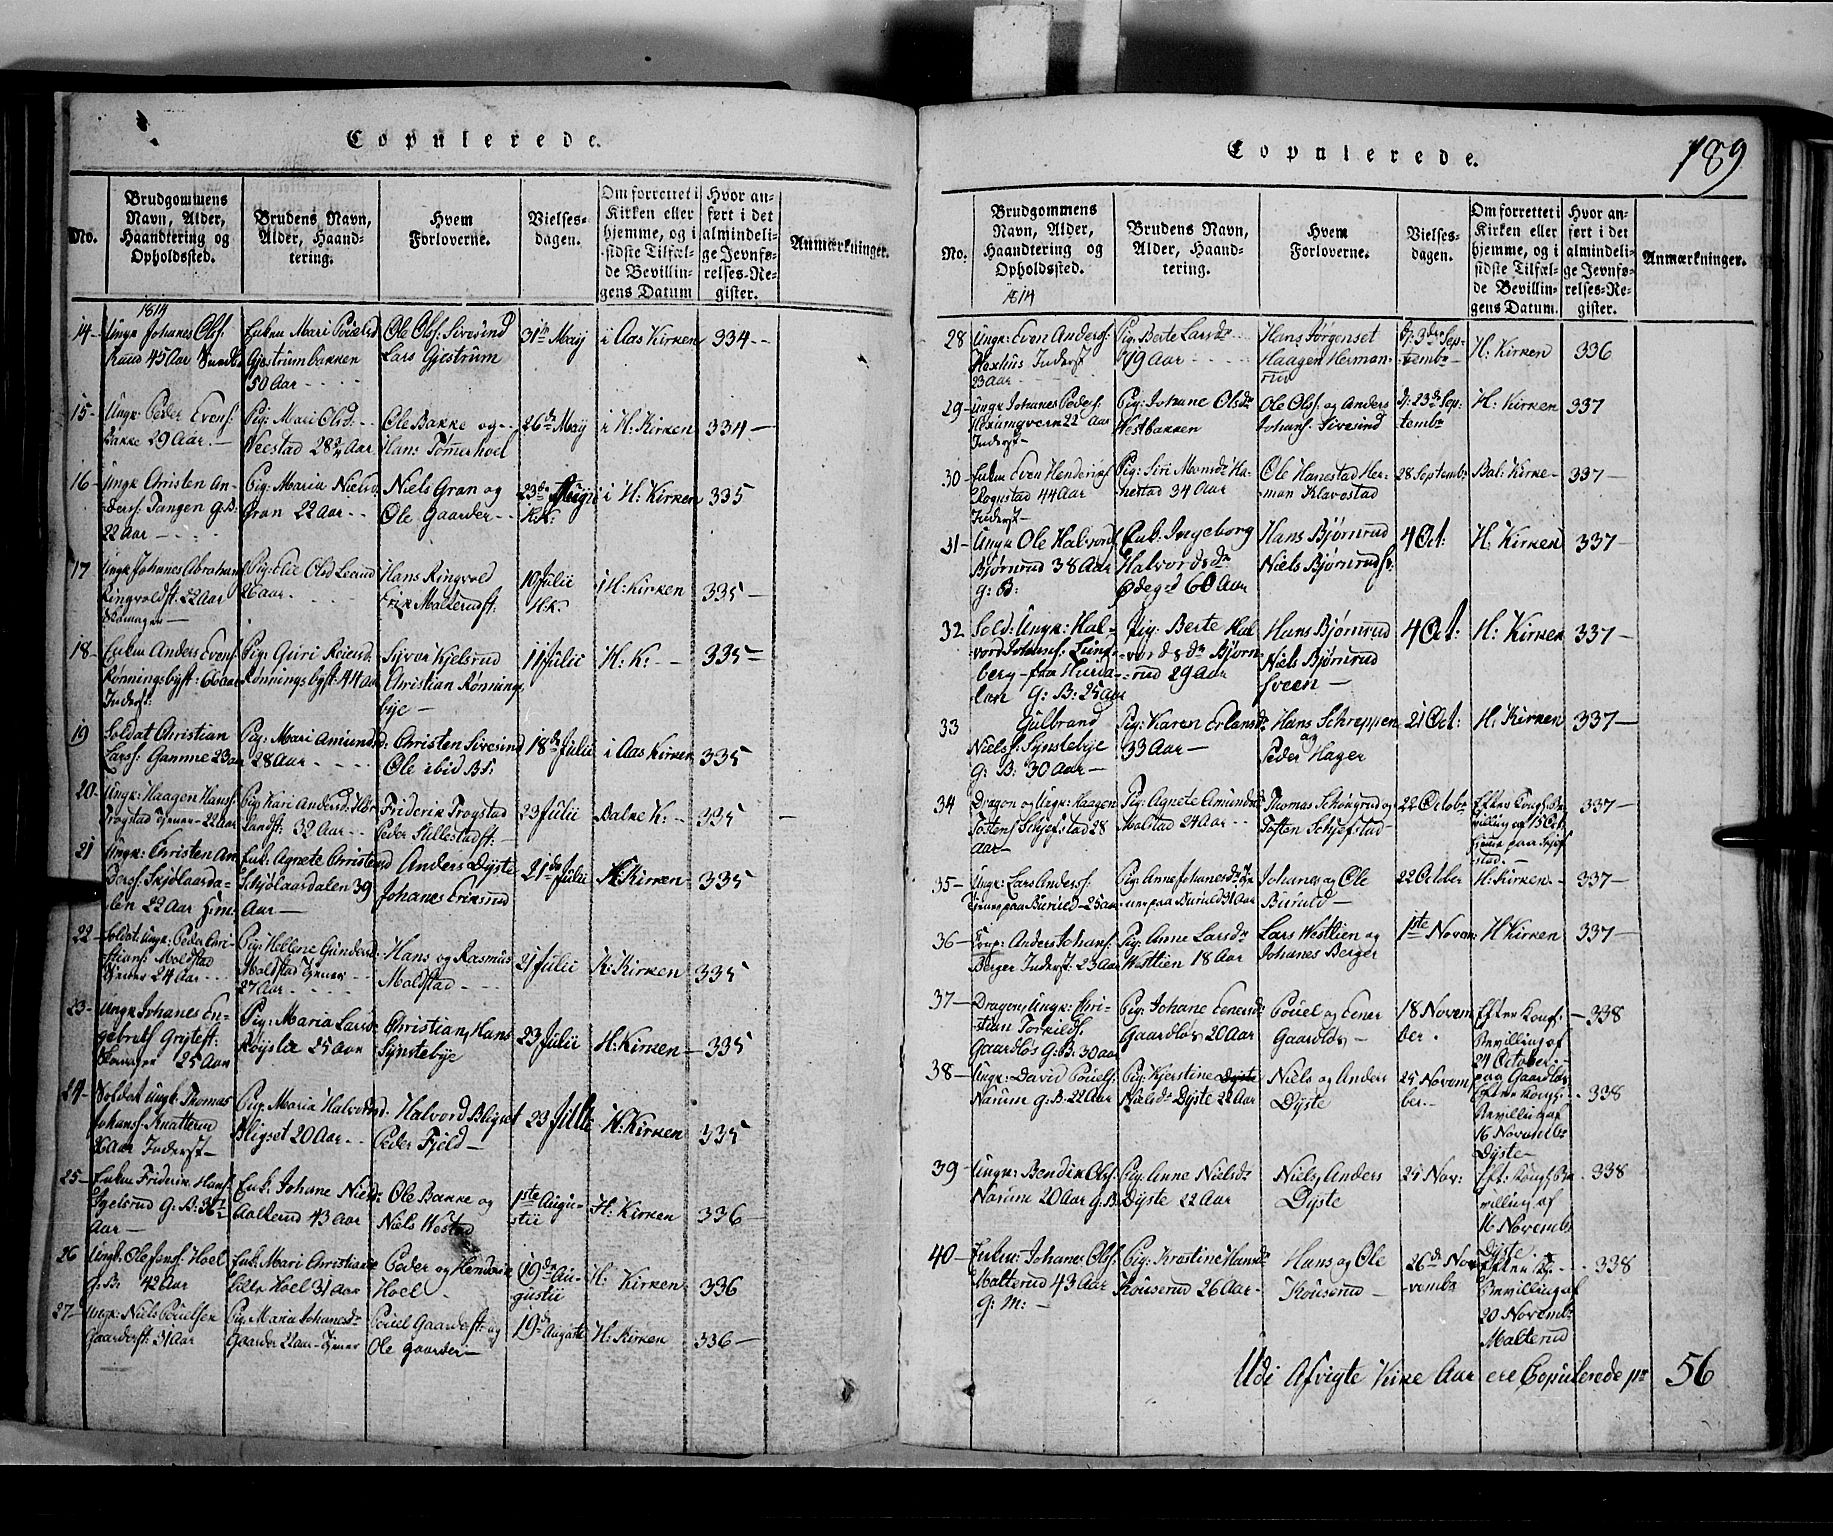 Copulerede.
No.
Brudgommens
Navn, Alder,
Haandtering og
Opholdssted.
Brudens Navn,
Alder, Haand-
tering.
Hvem
Forloverne.
Vielses-
dagen.
Om forrettet i
Kirken eller
hjemme, og i
sidste Tilfæl-
de Bevillin-
gens Datum
Hvor an-
ført i det
almindeli-
ge Jevnfø-
relses-Re-
gister.
Anmærkninger.
1814
14-
Ungk Johanes Olsf.
Raud 45 Aar
Enken Mari Povelsd
Gjestrumbakken
50 Aar
Ole Olsf. Sivesind
Lars Gjestrum
31te Maij
i Aas Kirken
334
15-
Ungk: Peder Evensf.
Bakke 29 Aar.
Pig: Mari Olsd.
Neestad 28 Aar
Ole Bakke og
Hans Tömerhoel
26de Maij
i H: Kirken
334
16-
Ungk Christen An-
dersf. Tangen G: B:
22 Aar
Pig: Maria Nielsd
Gran 22 Aar
Niels Gran og
Ole Gaarder
23de
H:K:
i H: Kirken
335
17
Ungk Johanes Abraham
Ringvoldst. 22 Aar
Pig: Olsd Leerud
26 aar.
Hans Ringvold
Erik Malterudst.
10 Julii
H.K.
i H: Kirken
335
18-
Enkem Anders Evens
Rönningsbyst: 66 aar
Inderst:
Pig: Guri Reiersd.
Rönningsbyst: 44 Aar
Syver Kjelsrud
Christian Rønnings
bye
11 Julii
H: K:
335
19
Soldat Christian
Larsf. Gamme 23 aar
Pig: Mari Amundsd
28 Aar
Christen Sivesind
Ole ibid
18de Julii
i Aas Kirken
335
20-
Ungk: Haagen Hansf.
Trogstad Tjener 22 Aar
Pig Kari Andersd:
landst: 32 Aar
Friderik Trogstad
Peder Sillestadst.
23 Julii
Balke K:
335
21
Ungk: Christen An
dersf. Skjölaasda-
len 22 Aar
Enk: Agnete Christensd
Schjölaasdalen 39
Aar
Anders Dyste
Johanes Eriksrud
21de Julii
H: Kirken
335
22-
Soldat: Ungk: Peder Chri-
stians. Moldstad
Tjener 24 Aar
Pig: Hellene Gundersd
Maldstad Tjener
27 Aar
Hans og Rasmus
Maldstad
21 Julii
H: Kirken
335
23-
Ungk Johanes En-
gebrets Grytest:
25 Aar
Pig: Maria Larsd
Röyslie 25 Aar
Christian, Hans
Synstebye
23 Julii
H: Kirken
335
24-
Soldat Ungk: Thomas
Johansf. Knatterud
26 Aar Inderst
Pig: Maria Halvorsd
Bligset 20 Aar
Halvord Bligset
Peder Fjeld
23 Jilli
H: Kirken
335
25-
Enkem Friderik Hansf.
G: B: 36
Aar
Enk: Johane Nielsd:
Aalkerud 43 Aar
Ole Bakke og
Niels Westad
1ste Augu-
stii
H: Kirken
336
26
Ungk: Ole Jensf. Hoel
G: B: 42 Aar
Enk: Mari Christians
lille Hoel 31 Aar
Peder og Henderik
Hoel
19de Au-
gustii
H: Kirken
336
27-
Ungk: Niels Povelsen
Gaarderst. 31 Aar
Pig: Maria Johanesd:
Gaarder 22 aar Tjener
Povel Gaarderst: og
Ole Gaarder
19de Auguste
H: Kirken
336
189
Copulerede.
No.
Brudgommens
Navn, Alder,
Haandtering og
Opholdssted.
Brudens Navn,
Alder, Haand-
tering.
Hvem
Forloverne.
Vielses-
dagen.
Om forrettet i
Kirken eller
hjemme, og i
sidste Tilfæl-
de Bevillin-
gens Datum.
Hvor an-
ført i det
almindeli-
ge Jevnfø-
relses-Re-
gister.
Anmærkninger.
1814
28
Ungk: Even Andersf.
Inderst
23 Aar
Pig: Berte Larsdr
79 Aar
Hans Jörgenset
Haagen Herman-
rud
d: 3die Sep-
tembr
H: Kirken
336
29-
Ungk Johanes Pedersf.
22 Aar
Inderst
Pig: Johane Olsdr
Westbakken
Ole Olsf. og Anders
Johansf. Sivesind
d: 23de Sep-
tembr
H: Kirken
337
30-
Enkem Even Henderiksf
Rognstad 44 Aar
Inderst
Pig: Siri Monsdr Ha-
nestad 34 Aar
Ole Hanestad Her-
man Klavestad
28 Septembr
Bal: Kirke
337
31-
Ungk Ole Halvords
Björnrud 38 Aar
G: B:
Enk. Ingeborg
Halvordsdr
Ödegd 60 Aar
Hans Bjørnrud
Niels Bjørnrudst.
4 Oct:
H: Kirken
337
32
Sold: Ungk: Hal-
vord Johansf. Ling-
berg fra Hurda-
len G: B: 25 Aar
Pig: Berte Hal
vordsdr Bjørn-
rud 29 Aar
Hans Björnrud
Niels Björnrud
sveen
4 Oct:
H: Kirken
337
33
Gulbrand
Nielsf. Synstebye
G: B: 30 Aar
Pig: Karen Erlandsdr
33 Aar
Hans Schreppen
og
Peder Hager
21 Oct:
H: Kirken
337
34
Dragon og Ungk: Haagen
Tostens Schjefstad 28
aar
Pig: Agnete Amundsdr
Malstad 24 Aar
Thomas og
Tosten Schjefstad
22 Octobr
Efter Kongs Be
villing af 15 Oct:
hjeme paa Skjef
stad.
337
35-
Ungk: Lars Andersf.
Tjener paa Burud 25 aar
Pig: Anne Johanesdr Tje
ner paa Burud 31 Aar
Johanes og Ole
Buruld
22 October
H: Kirken
337
36-
Trop: Anders Johansf.
Berger Inderst: 23 Aar
Pig: Anne Larsdr
Westlien 18 Aar
Lars Westlien og
Johanes Berger
1ste Novem
H Kirken
337
37-
Dragon, Ungk: Chri-
stian Torkildsf.
Gaardlös G: B: 30 aar
Pig: Johane Eenersd
Gaardlös 20 Aar
Povel og Eener
Gaardlös
18 Novem
ber.
Efter Kongs.
Bevilling af
24 October
paa Gaardlös
338
38-
Ungk: David Povelsf.
Narum G. B. 22 Aar
Pig: Kjerstine Dyste
Nielsdr Dyste 22 Aar
Niels og Anders
Dyste
25 Novem
ber.
Efter Kongs.
Bevilling af
16 Novembr
Dyste
338
39
Ungk: Bendik Olsf.
Narum 20 Aar G. B.
Pig: Anne Nielsdr
Dyste 22 Aar
Niels, Anders
Dyste
25 Nov:
Eft: Kongs Be
villing af
16 Novembr
Dyste
338
40-
Enkem: Johanes Olsf.
Malterud 43 Aar
G: M:
Pig: Kirstine Hansdr
Kouserud 26 Aar
Hans og Ole
Kouserud
26de No-
vembr
Efter Kg:
Bevilling af
20 Novembr
Malterud
338
Udi Afvigte Kirke Aar ere Copulerede pr 56